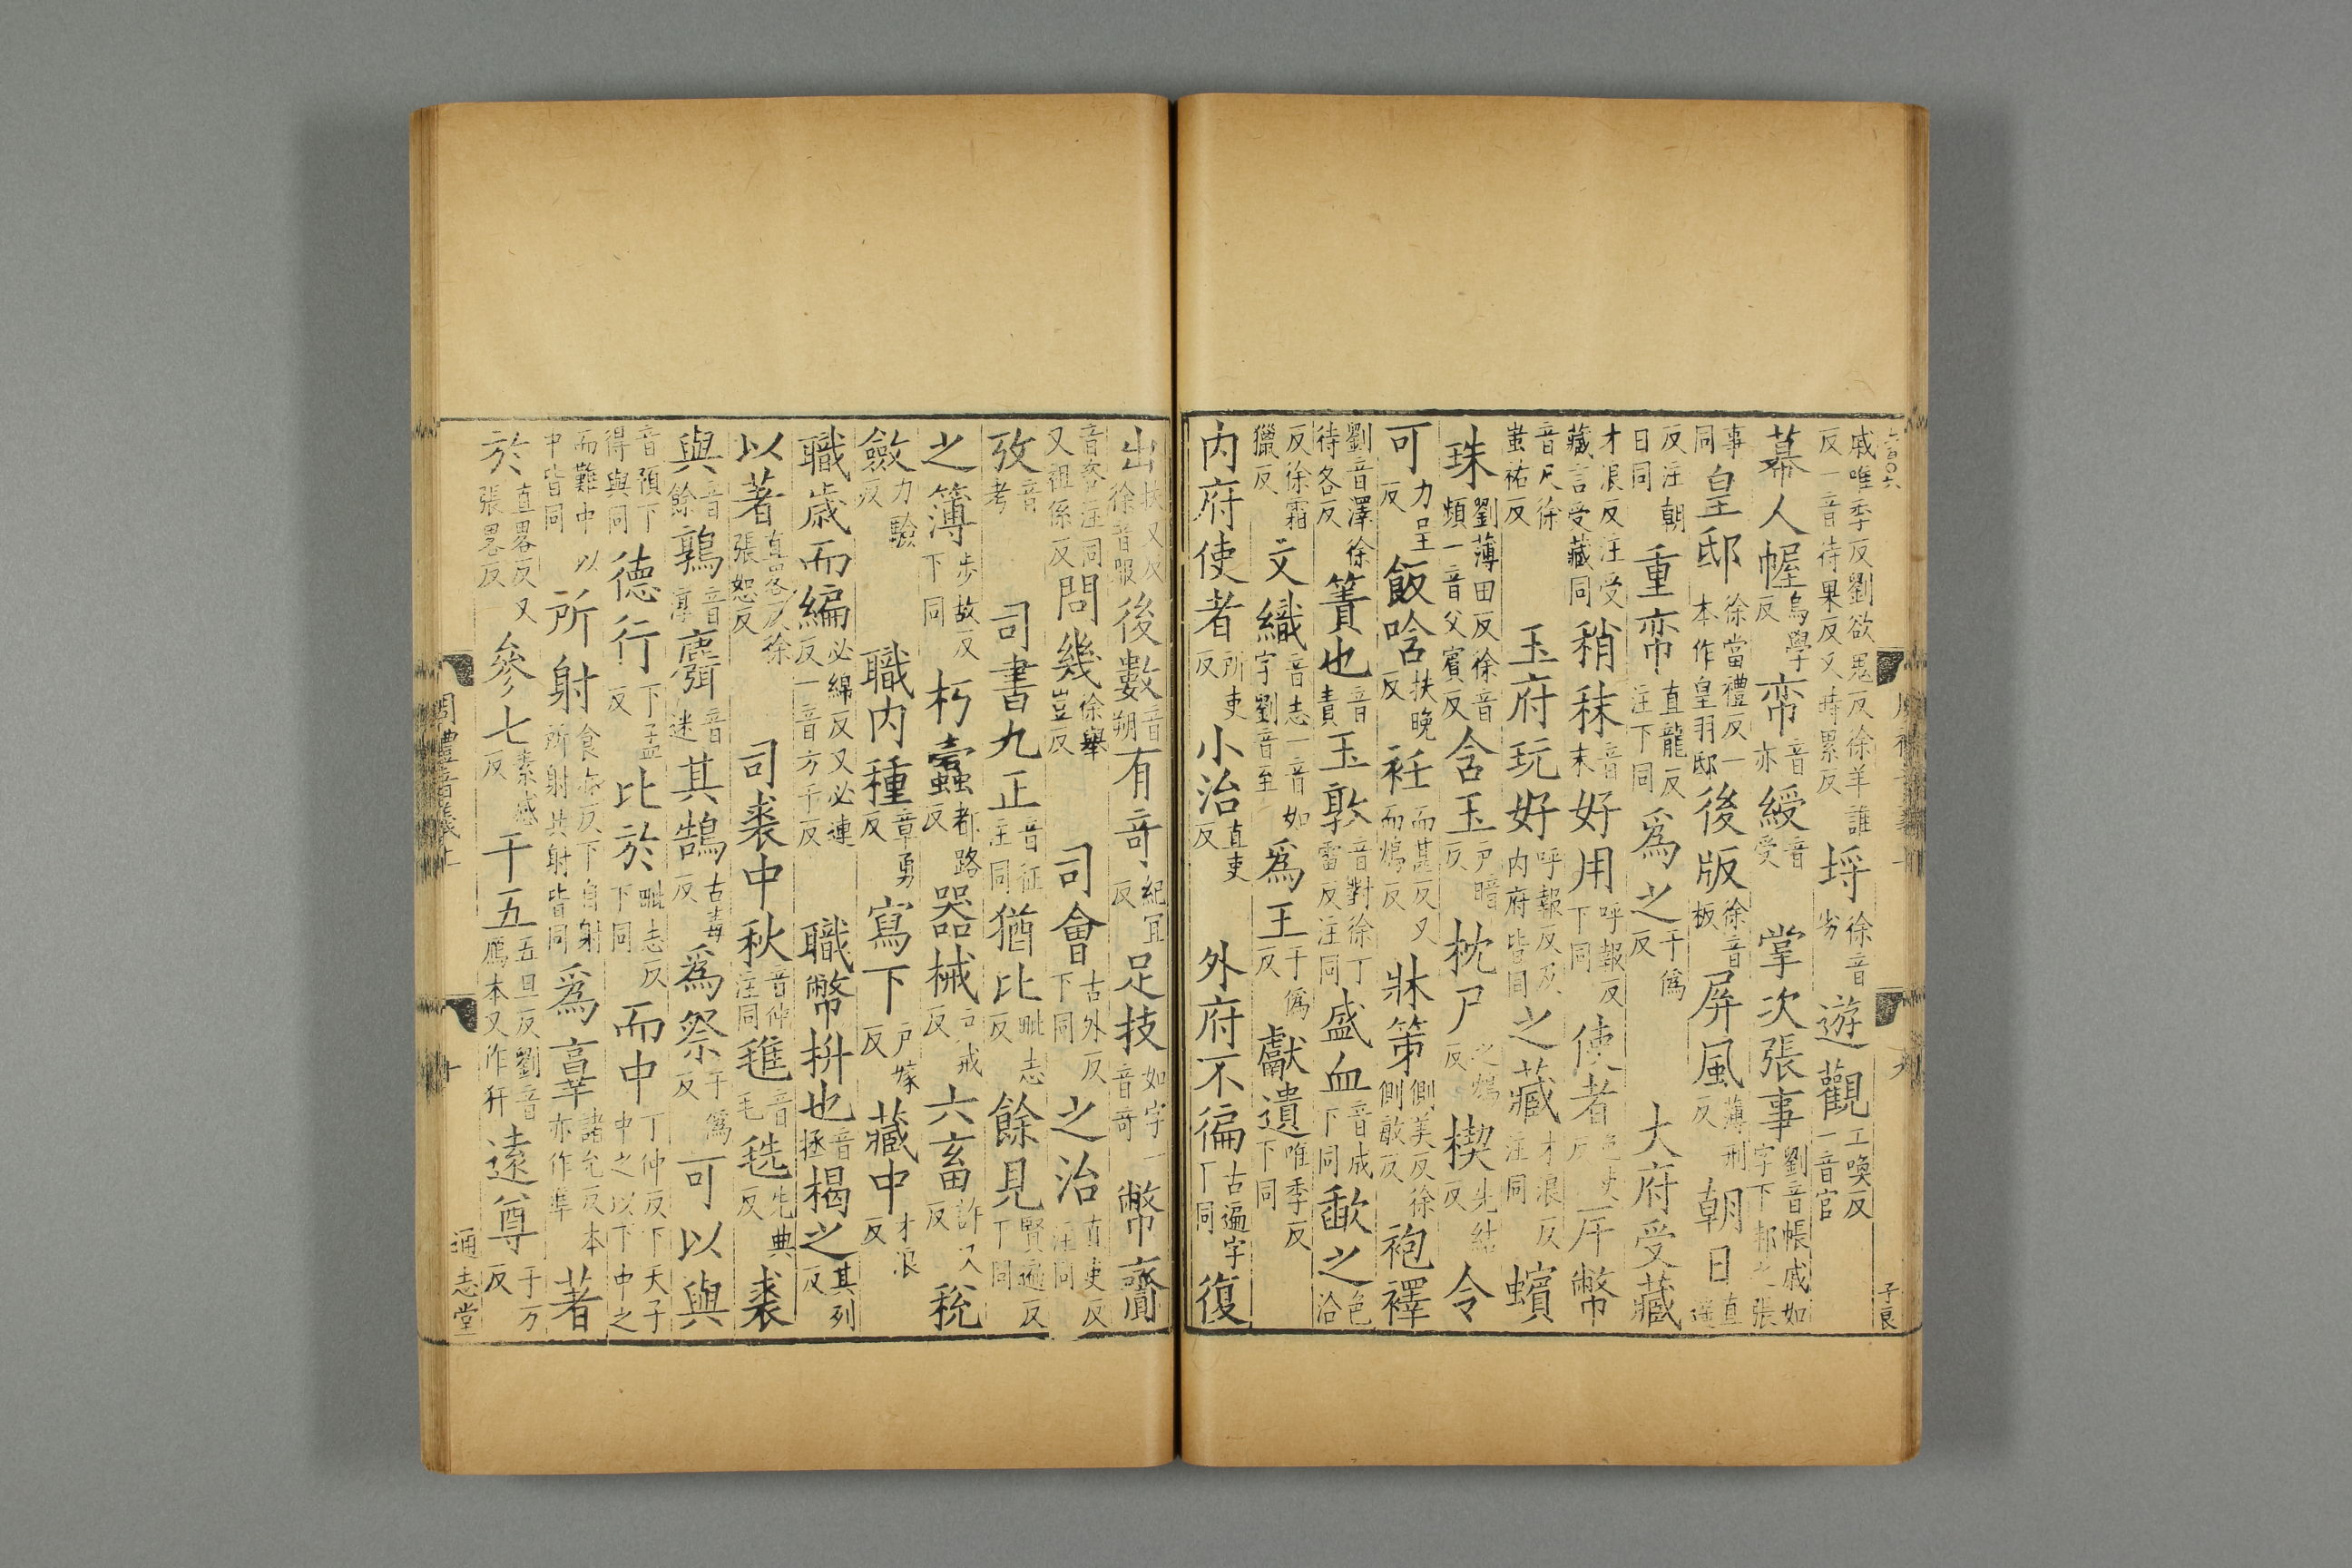 戚唯季反劉欲鬼反徐羊誰反一音待果反又時累反埒徐音劣遊觀工喚反一音官
幕人幄烏學反帟音亦綬音受掌次張事劉音帳戚如字下邦之張
事同皇邸徐當禮反一本作皇羽邸後版徐音板屏風薄刑反朝日直遙
反注朝日同重帟直龍反注下同爲之于僞反大府受藏
才浪反注受藏言受藏同稍秣音末好用呼報反下同使者色吏反斥幣
音尺徐蚩祐反玉府玩好呼報反及内府皆同之藏才浪反注同蠙
珠劉薄田反徐音頻一音父賓反含玉戸暗反枕尸之鴆反楔先結反令
可力呈反飯唅扶晚反衽而甚反又而鴆反牀笫側美反徐側敢反袍襗
劉音澤徐待各反簀也音責玉敦音對徐丁雷反注同盛血音成下同歃之色洽
反徐霜獵反文織音志一音如字劉音至爲王于僞反獻遺唯季反下同
内府使者所吏反小治直吏反外府不徧古遍字下同復
出扶又反徐音服後數音朔有竒紀宜反足技如字一音竒幣齎
音咨注同又祖係反問幾徐舉豈反司會古外反下同之治直吏反注同
攷音考司書九正音征注同猶比毗志反餘見賢遍反下同
之簿步故反下同朽蠹都路反器械戸戒反六畜許又反稅
斂力驗反職内種章勇反寫下戸嫁反藏中才浪反
職歲而編必綿反又必連反一音方千反職幣拚也音拯楬之其列反
以著直畧反徐張恕反司裘中秋音仲注同毨毛毨先典反裘
與音餘鶉音享麛音迷其鵠古毒反爲祭于僞反可以與
音預下得與同德行下孟反比於毗志反下同而中丁仲反下天子中之以下中之
而難中以中皆同所射食亦反下自射所射共射皆同爲㬹諸允反本亦作準著
於直畧反又張畧反參七素感反干五五旦反劉音鴈本又作犴遠尊于万反
周禮音義上
十
通志堂
子良